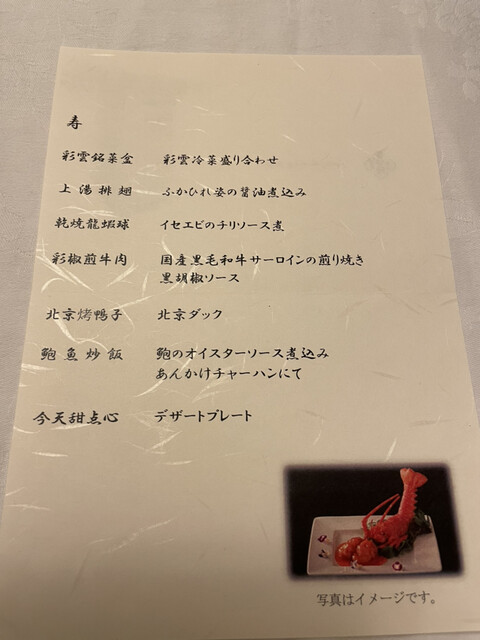 寿
彩雲銘菜盆 彩雲冷菜盛り合わせ
上湯排翅 ふかひれ姿の醤油煮込み
乾焼龍蝦球 イセエビのチリソース煮
彩椒煎牛肉 国産黒毛和牛サーロインの煎り焼き
黒胡椒ソース
北京烤鴨子 北京ダック
鮑魚炒飯 鮑のオイスターソース煮込み
あんかけチャーハンにて
今天甜点心 デザートプレート
写真はイメージです。